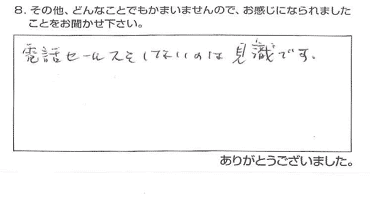 8. その他、どんなことでもかまいませんので、お感じになられました
ことをお聞かせ下さい。
電話セールスをしないのは見識です。
ありがとうございました。